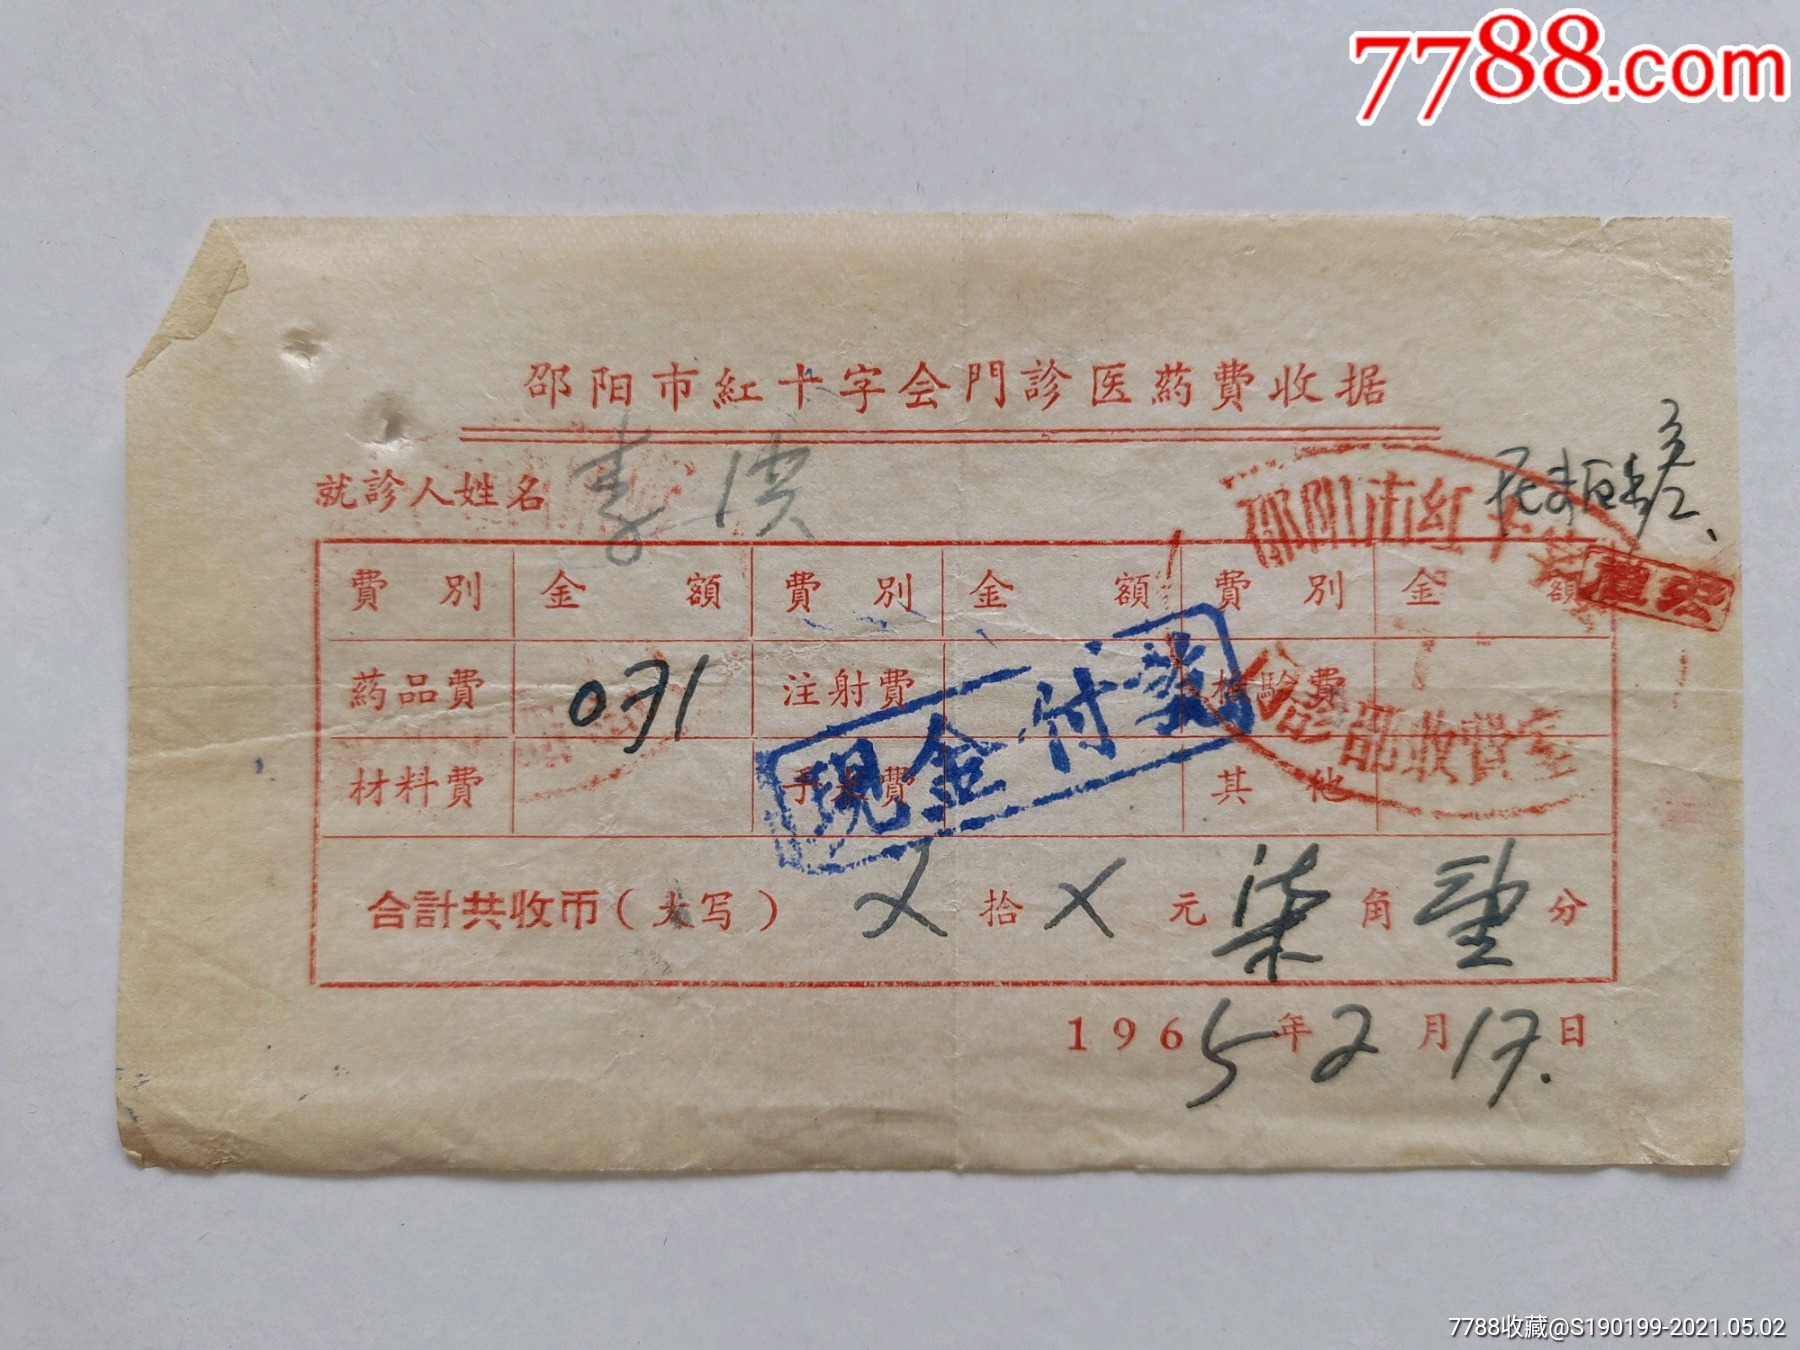 7788.com
邵阳市紅十字会門診医葯費收据
就診人姓名 李洪
費別 金額 費別 金額 費別 金額
葯品費 071 注射費 檢驗費
材料費 手术費 其他
現金付訖
邵阳市紅十
診部收費室
合計共收币（大写） X 拾 X 元 柒 角 壹 分
1965年2月17日
7788收藏@S190199-2021.05.02